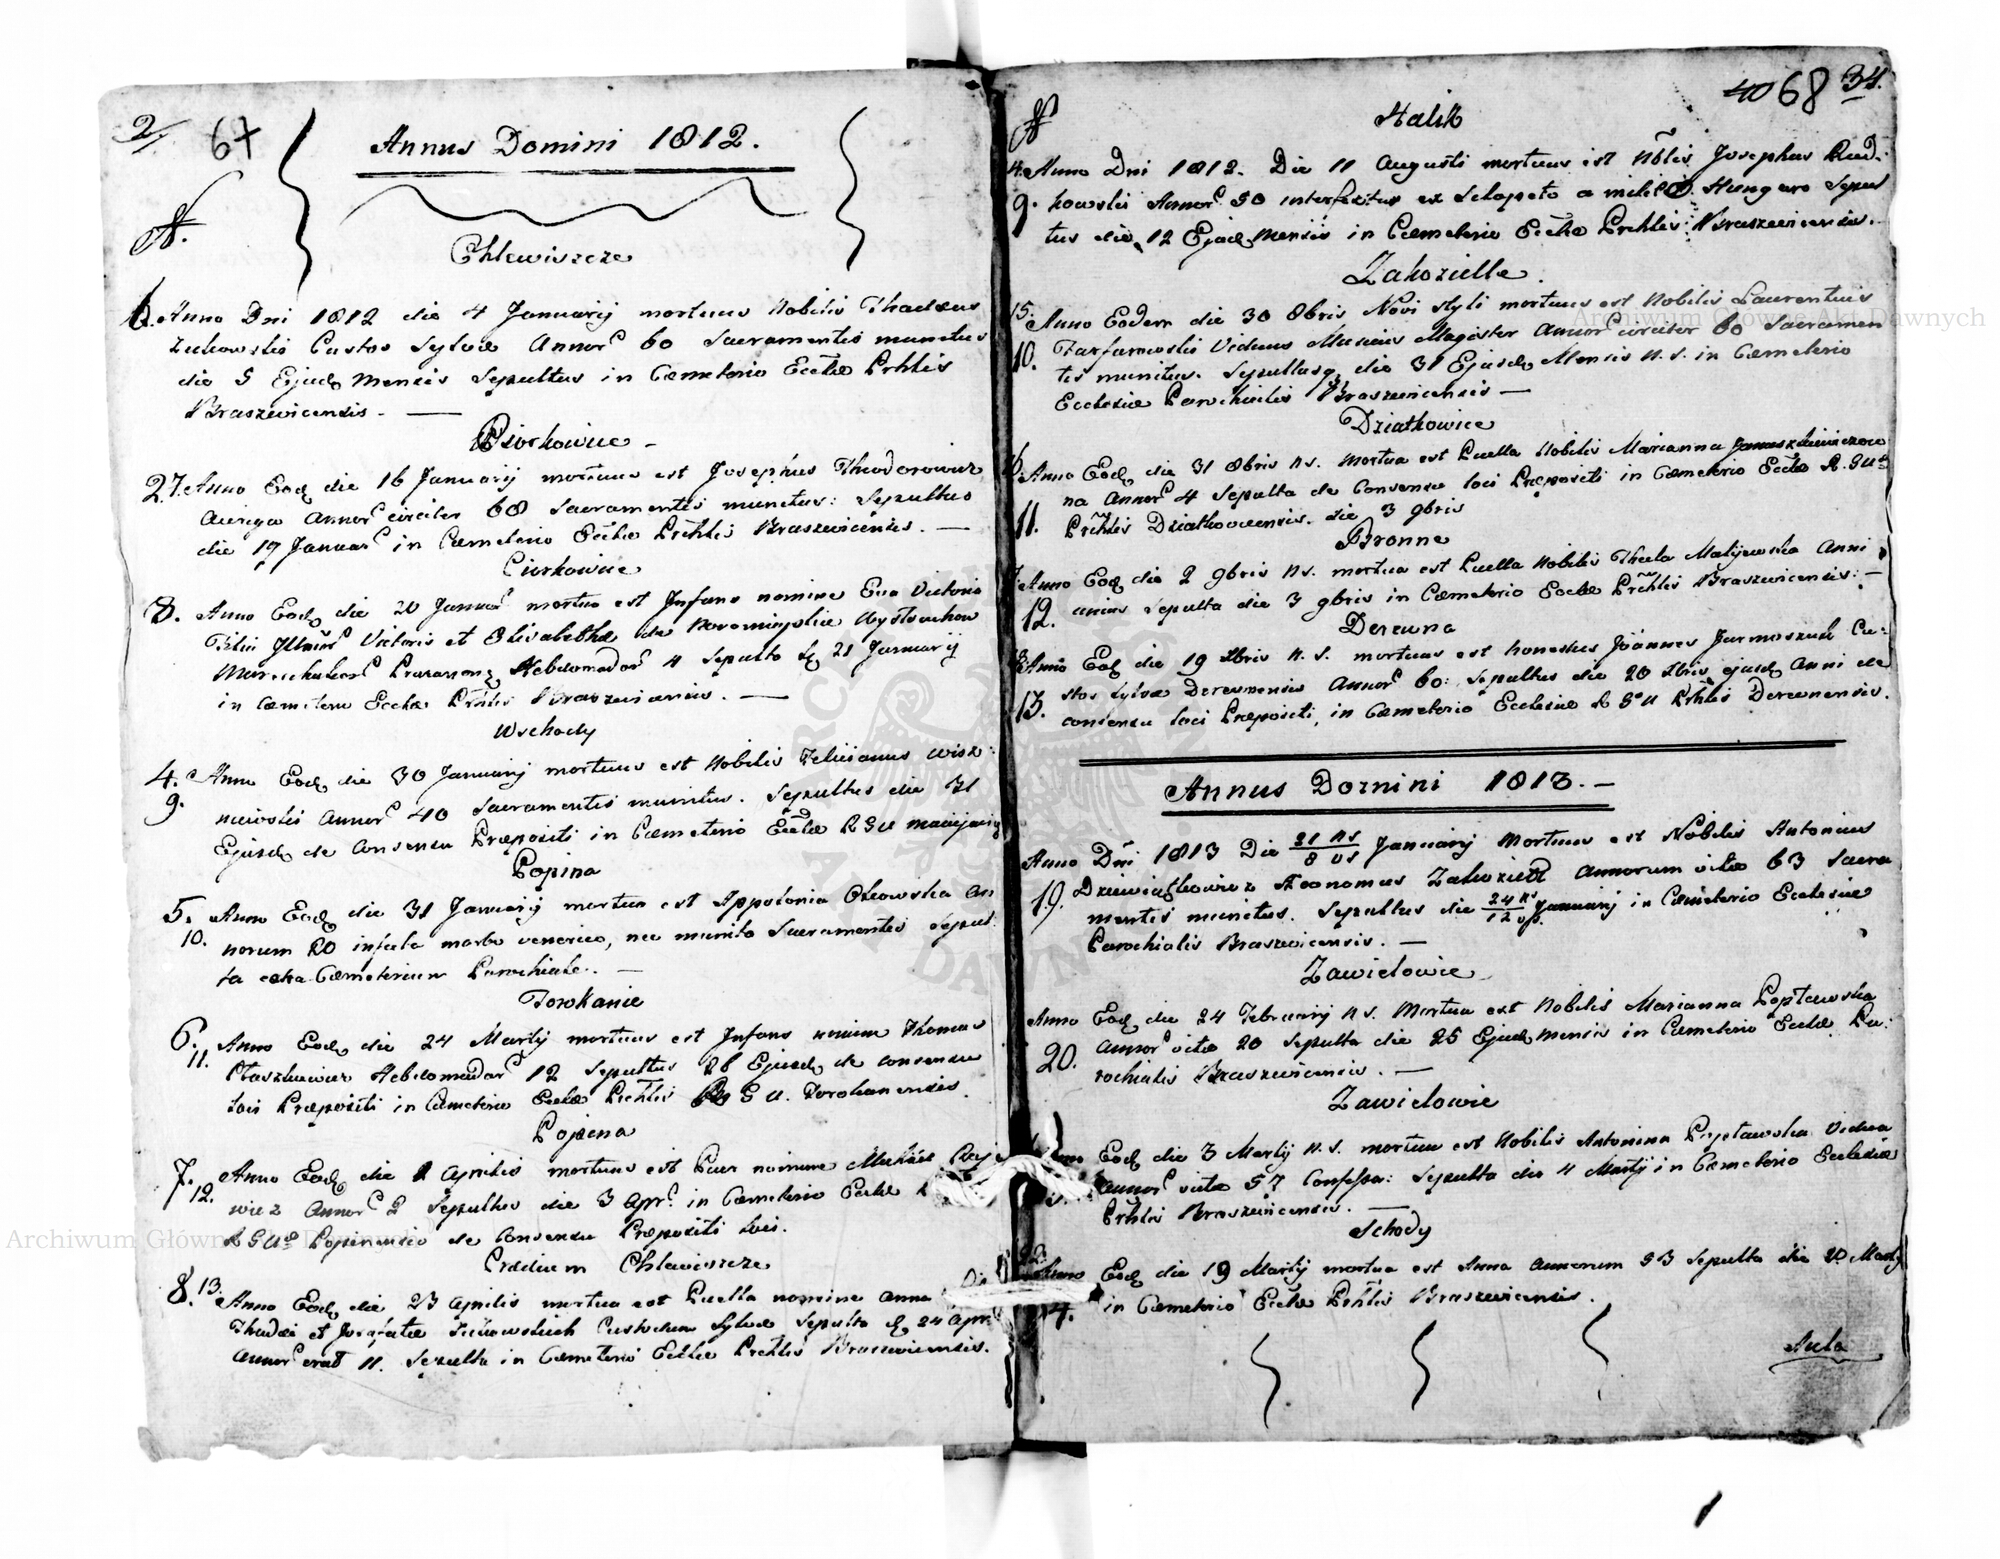 2/ 67
Annus Domini 1812.
N.
Chlewiszcze
6. Anno Dni 1812 die 4 Januarij mortuus Nobilis Thadeus
Zukowski Custos Sylvæ Annor̃ 60 Sacramentis munitus
die 5 Ejusdq Mensis Sepultus in Cœmeterio Eccłæ Prhlis
Braszewicensis. —
Psorkowice -
2.7. Anno Eodq die 16 Januarij mortuus est Josephus Theodorowicz
Auriga Annor̃ circiter 68 Sacramentis munitus: Sepultus
die 17 Januar̃ in Cœmeterio Eccłæ Prchlis Braszewicensis. —
Ciorkowice
8. Anno Eodq die 20 Januar̃ mortua est Infans nomine Eva Victoria
Filia Victoris et Elisabethæ de
Hebdomadar̃ 4 Sepulta dq 21 Januarij
in Cœmeterio Eccłæ Prhlis Braszewicensis. —
Wschody
4. Anno Eodq die 30 Januarij mortuus est Nobilis Felicianus Wisz-
9. niewski Annor̃ 40 Sacramentis munitus. Sepultus die 31
Ejusdq de Consensu Præpositi in Cœmeterio Eccłæ R G U
Popina
5. Anno Eodq die 31 Januarij mortua est Appolonia Olkowska An
10. norum 20 infecta morbo venereo, nec munita Sacramentis Sepul:
ta extra Cœmeterium Parochiale. —
Torokanie
6. Anno Eodq die 24 Martij mortuus est Infans nomine Thomas
11. Ptaszkiewicz Hebdomadar̃ 12 Sepultus 26 Ejusdq de consensu
loci Præpositi in Cœmeterio Eccłæ Prchlis R G U. Torokanensis.
Popina
7. Anno Eodq die 1 Aprilis mortuus est Puer nomine Michael
12. wicz Annor̃ 2 Sepultus die 3 Apr̃. in Cœmeterio Eccłæ
R G U Popinensis de Consensu Præpositi loci.
Prædium Chlewiszcze
8. 13. Anno Eodq die 23 Aprilis mortua est Puella nomine Anna
Thadei et Josephatæ Zukowskich Custodum Sylvæ Sepulta dq 24 Apr.
Annor̃ erat 11. Sepulta in Cœmeterio Eccłæ Prchlis Braszewicensis.
40 68 34.
N
Halik
4. Anno Dni 1812. Die 11 Augusti mortuus est Nblis Josephus Rud:
9. kowski Annor̃ 50 interfectus ex Sclopeto a milite Hungaro Sepul
tus die 12 Ejusdq Mensis in Cœmeterio Eccłæ Prchlis Braszewicensis.
Zakozielle.
15. Anno Eodem die 30 8bris Novi styli mortuus est Nobilis Laurentius
10. Farfurowski Viduus Musicus Magister Annor̃ circiter 60 Sacramen
tis munitus. Sepultusq die 31 Ejusdq Mensis n. s. in Cœmeterio
Ecclesiæ Parochialis Braszewicensis —
Dziatkowice
6. Anno Eodq die 31 8bris n s. mortua est Puella Nobilis Marianna
11. na Annor̃ 4 Sepulta de Consensu loci Præpositi in Cœmeterio Eccłæ R. G U
Prchlis Dziatkowicensis. die 3 9bris
Bronne
7. Anno Eodq die 2 9bris n s. mortua est Puella Nobilis Thecla Malijewska Anni
12. unius Sepulta die 3 9bris in Cœmeterio Eccłæ Prchlis Braszewicensis: —
Derewna
8. Anno Eodq die 19 Xbris n. s. mortuus est honestus Joannes Jarmoszuk Cu:
13. stos Sylvæ Derewnensis Annor̃ 60: Sepultus die 20 Xbris ejusdq Anni de
consensu loci Præpositi, in Cœmeterio Ecclesiæ R G U Prhlis Derewnensis.
Annus Domini 1813. -
Anno Dni 1813 Die 21 ns / 8 vs Januarij Mortuus est Nobilis Antonius
19. Dziewiątkowicz Æconomus Zakoziell Annorum vitæ 63 Sacra
mentis munitus. Sepultus die 24 ns / 12 vs Januarij in Cœmeterio Ecclesiæ
Parochialis Braszewicensis. —
Zawielowie
Anno Eodq die 24 Februarij n s. Mortua est Nobilis Marianna Popławska
20. Annor̃ vitæ 20 Sepulta die 25 Ejusdq mensis in Cœmeterio Eccłæ Pa:
rochialis Braszewicensis. —
Zawielowie
Eodq die 3 Martij n. s. mortua est Nobilis Antonina Popławska Vidua
Annor̃ vitæ 57 Confessa: Sepulta die 4 Martij in Cœmeterio Ecclesiæ
Prhlis Braszewicensis. —
Schody
Anno Eodq die 19 Martij mortua est Anna Annorum 53 Sepulta die 20 Martij
in Cœmeterio Eccłæ Prhlis Braszewicensis.
Aula
Archiwum Główne Akt Dawnych